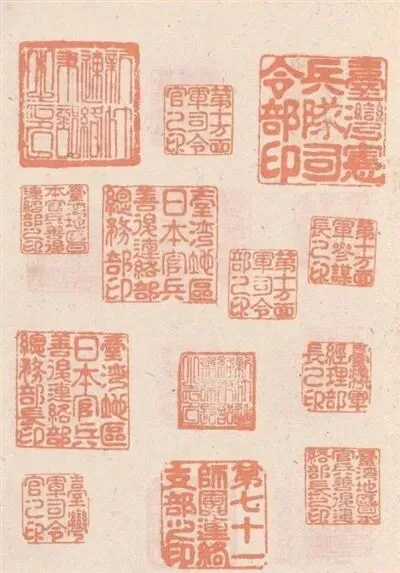 第十方面
軍司令
官之印
臺灣憲
兵隊司
令部印
臺灣地區日
本官兵善後
連絡部之印
臺灣地區
日本官兵
善後連絡部
總務部印
第十方面
軍參謀
長之印
第十方面
軍司令
部之印
臺灣地區
日本官兵
善後連絡部
總務部長印
臺灣軍
經理部
長之印
臺灣
軍司令
官之印
第七十一
師團連絡
支部之印
臺灣地區日本
官兵善後連
絡部長之印